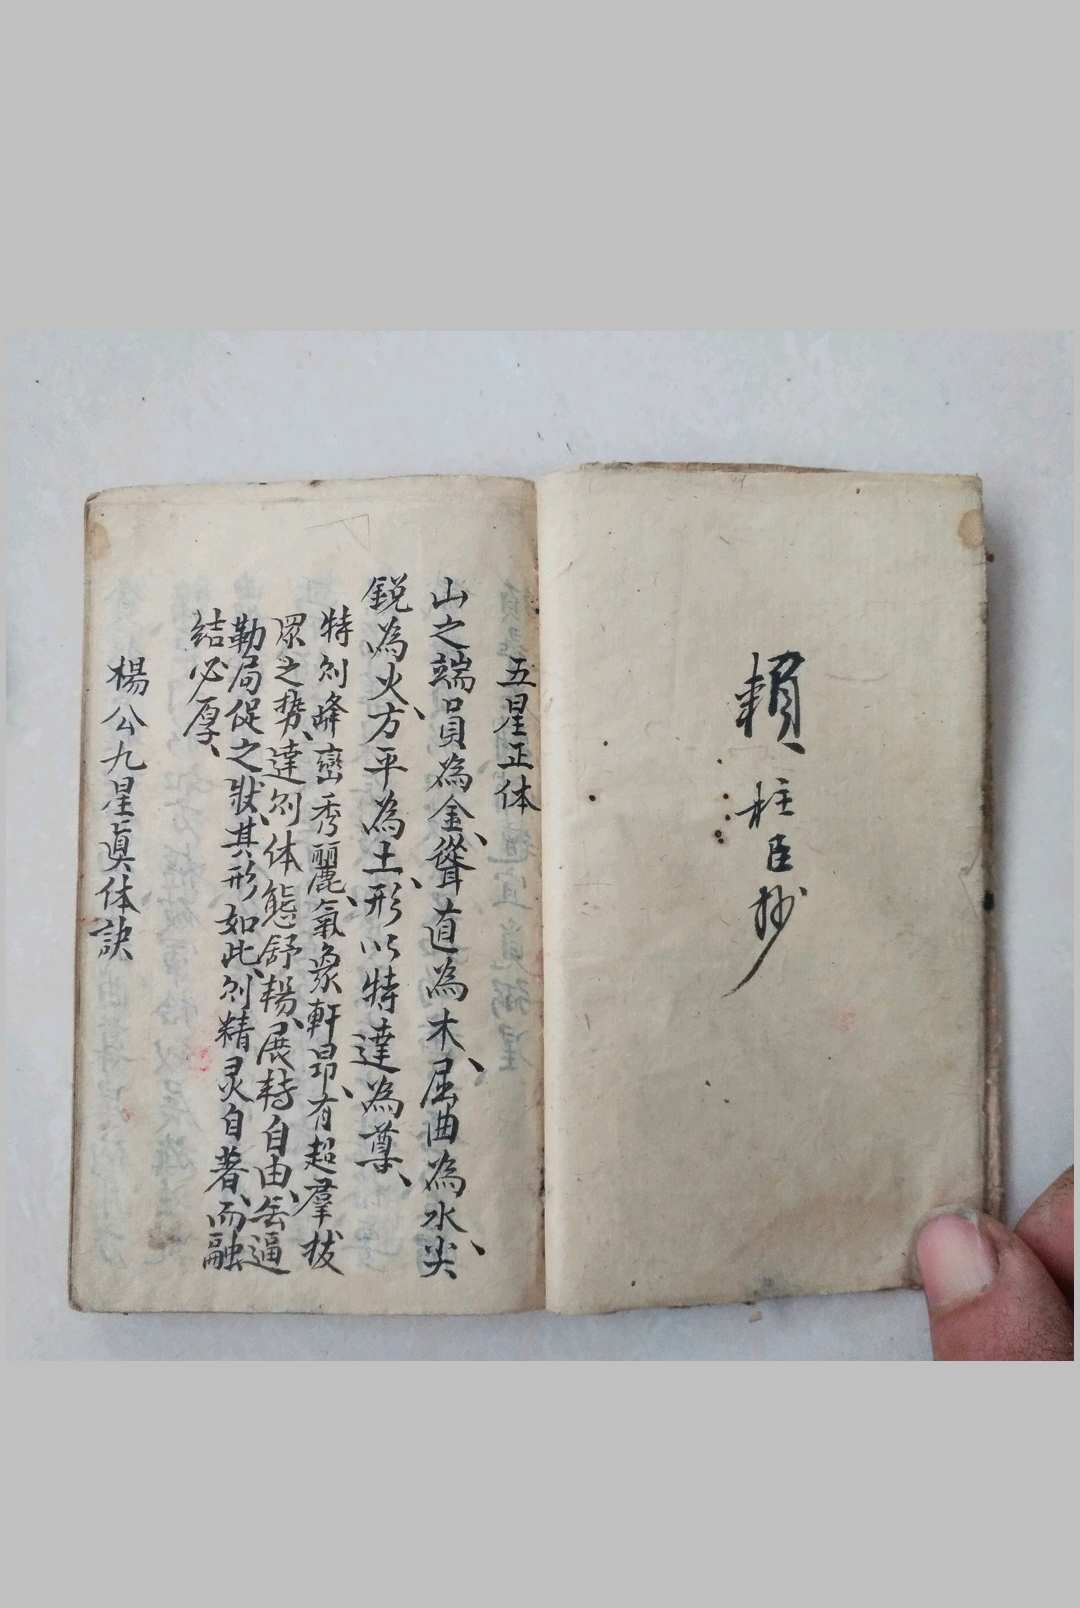 賴柱臣抄
五星正体
山之端員為金、聳直為木、屈曲為水、尖
銳為火、方平為土、形以特達為尊、
特則峰巒秀麗、氣象軒昂、有超羣拔
眾之勢、達則体態舒揚、展轉自由、無逼
勒局促之狀、其形如此、則精灵自著、而融
結必厚、
楊公九星真体訣